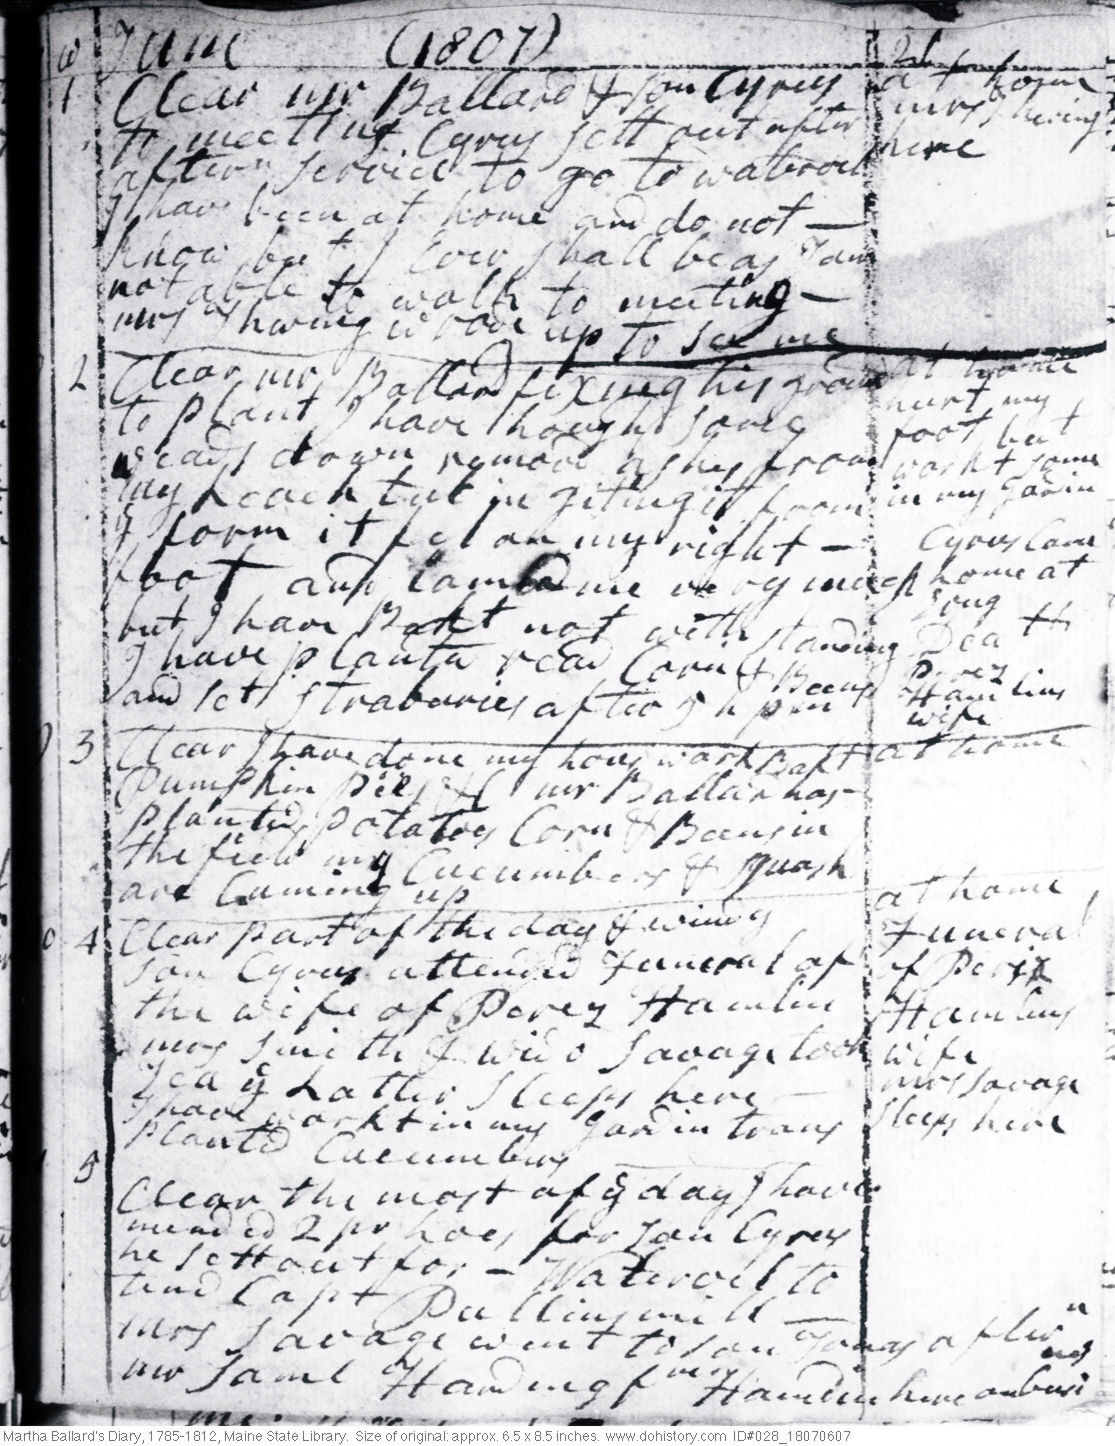 June (1807)
1 Clear mr Ballard & son Cyrus
to meeting Cyrus sett out after
aftern service to go to
I have been at home and do not –
know but I Ever shall be as I am
not able to walk to meeting –
mrs Thwing up to see me
at home
mrs Thwing
here
2 Clear mr Ballard fixing his
to plant I have hough some
weads down remove ashes from
my Leach tub in giting it from
form it fel on my right –
foot and lamed me very much
but I have Bakt not with standing
I have planted read Corn & Beens
and sett straberies after
at home
hurt my
foot but
workt some
in my gardin
Cyrus Came
home at
Death
Perez
Hamlins
wife
3 Clear I have done my hous work Bakt
Pumpkin Pies &C mr Ballard has
Planted potatoes Corn & Beens in
the field my Cucumbers & squash
are Cuming up
at home
4 Clear part of the day &
son Cyrus attended Funeral of
the wife of Perez Hamlin
mrs Smith & wido Savage took
Tea ye Latter Sleeps here –
I have workt in my gardin trans
planted Cucumbers
at home
Funeral
of Perez
Hamlins
wife
mrs Savage
sleeps here
5 Clear the most of ye day I have
mended 2 pr hoes for son Cyrus
he sett out for – to
tend Capt mill –
mrs Savage went to son aftern
mr Saml Harding Hamlin here on
Martha Ballard's Diary, 1785-1812, Maine State Library. Size of original: approx. 6.5 x 8.5 inches. www.dohistory.com ID#028_18070607